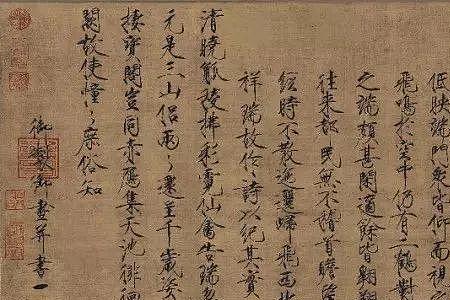 低映端門衆皆仰而視
飛鳴於空中仍有二鶴對
之端頗甚閑適餘皆翱翔
往來都民無不稽首瞻
經時不散迤邐歸飛西北
祥瑞故作詩以紀其實
清曉觚稜拂彩霓仙禽告瑞忽
元是三山侶兩〻還呈千歲姿
棲寶閣豈同赤鴈集天池徘徊
闕故使憧〻庶俗知
御製御畫并書